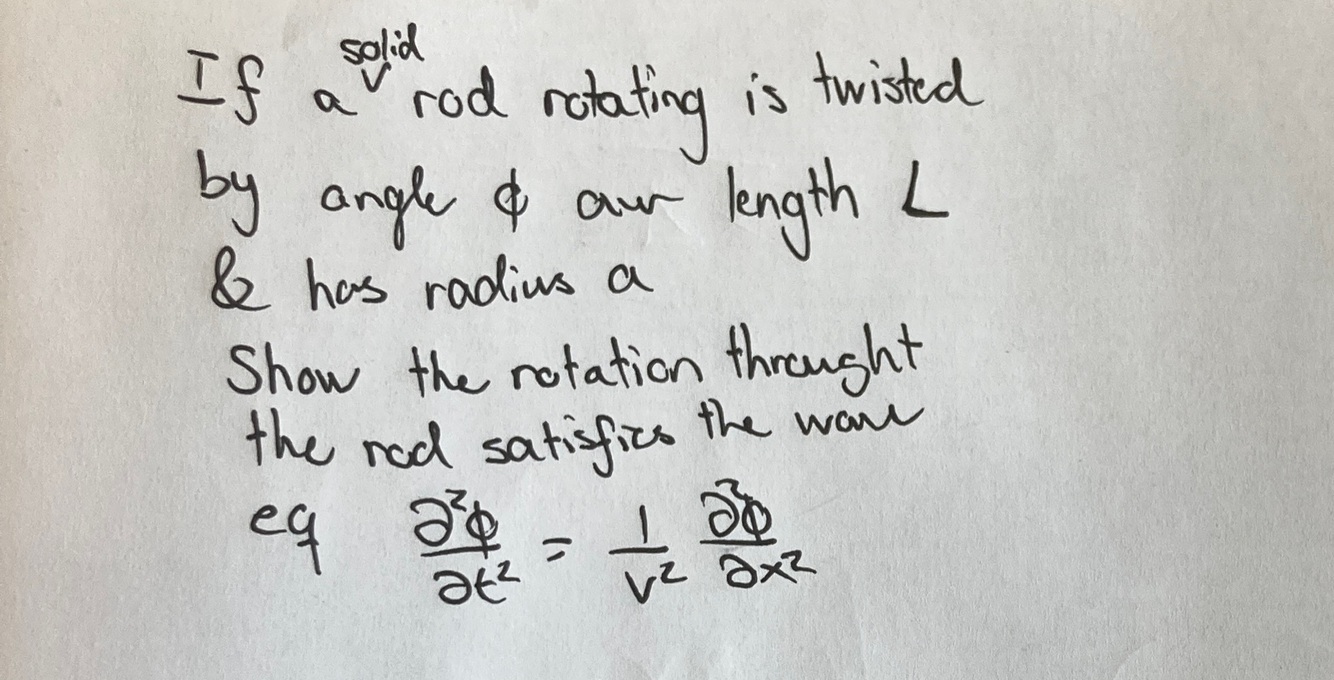 If a solid rod rotating is twisted
by angle ϕ over length L
& has radius a
Show the rotation throught
the rod satisfies the wave
eq ∂²ϕ/∂t² = 1/v² ∂²ϕ/∂x²